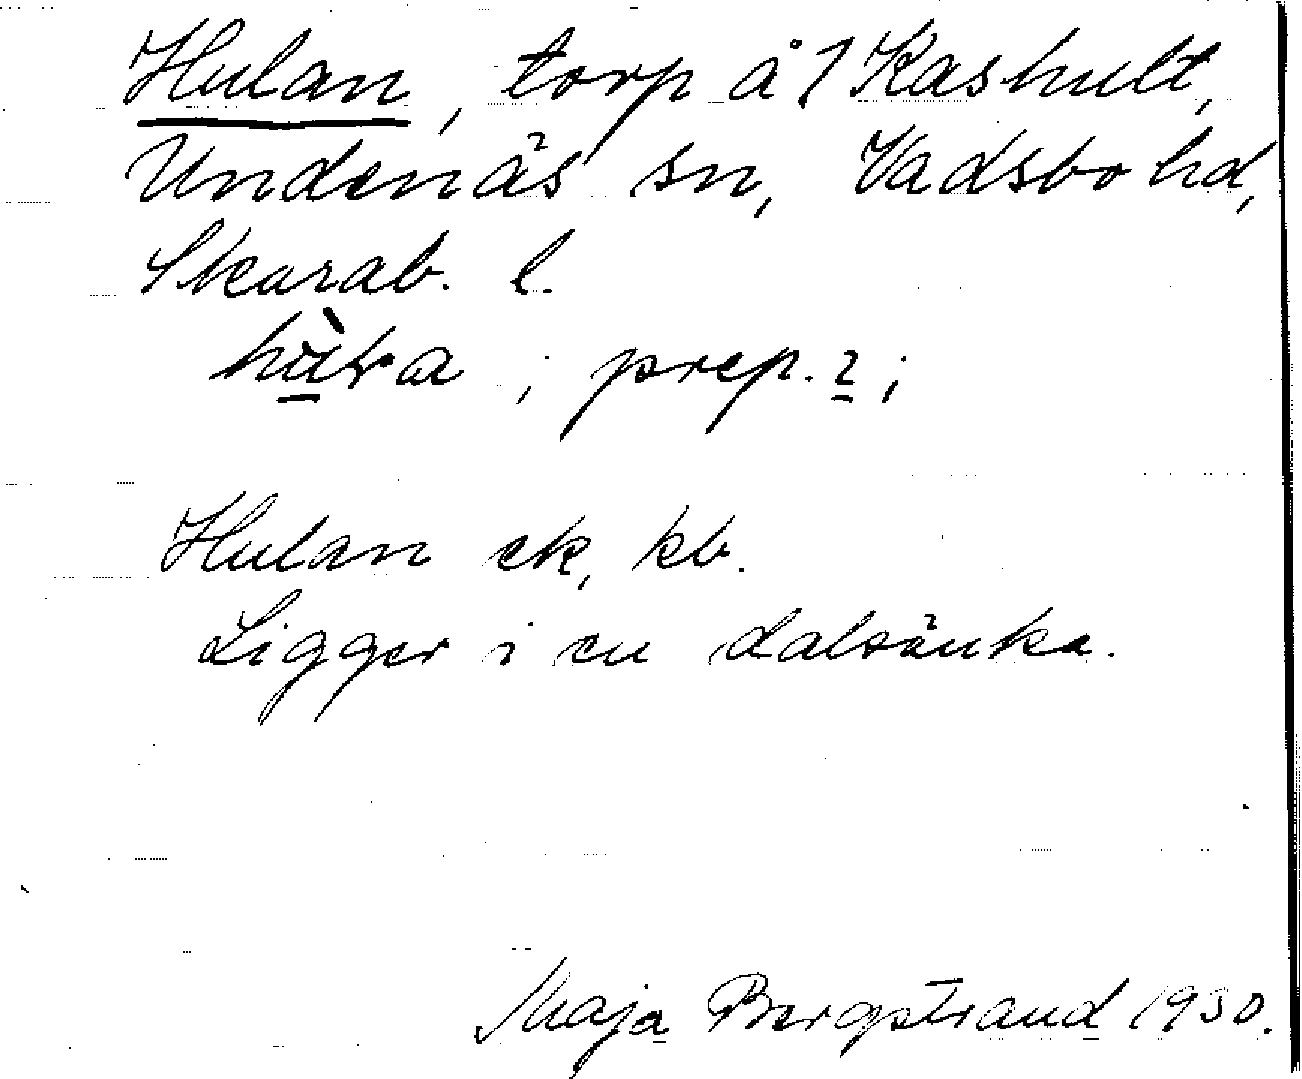 Hulan, torp å 1 Kashult,
Undenäs sn, Vadsbo hd,
Skarab. l.
; prep. i ;
Hulan ek, kb.
Ligger i en dalsänka.
Maja Bergstrand 1930.